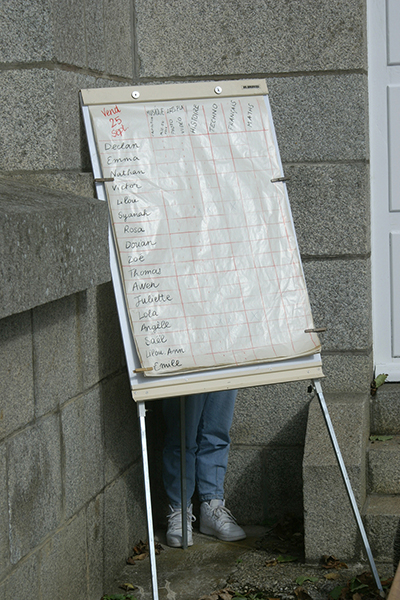 Vend
25
sept
HISTOIRE
TECHNO
FRANÇAIS
MATHS
Declan
Emma
Nathan
Victor
Lilou
Syanah
Rosa
Donan
Zoé
Thomas
Awen
Juliette
Lola
Angèle
Lilou Ann
Emile